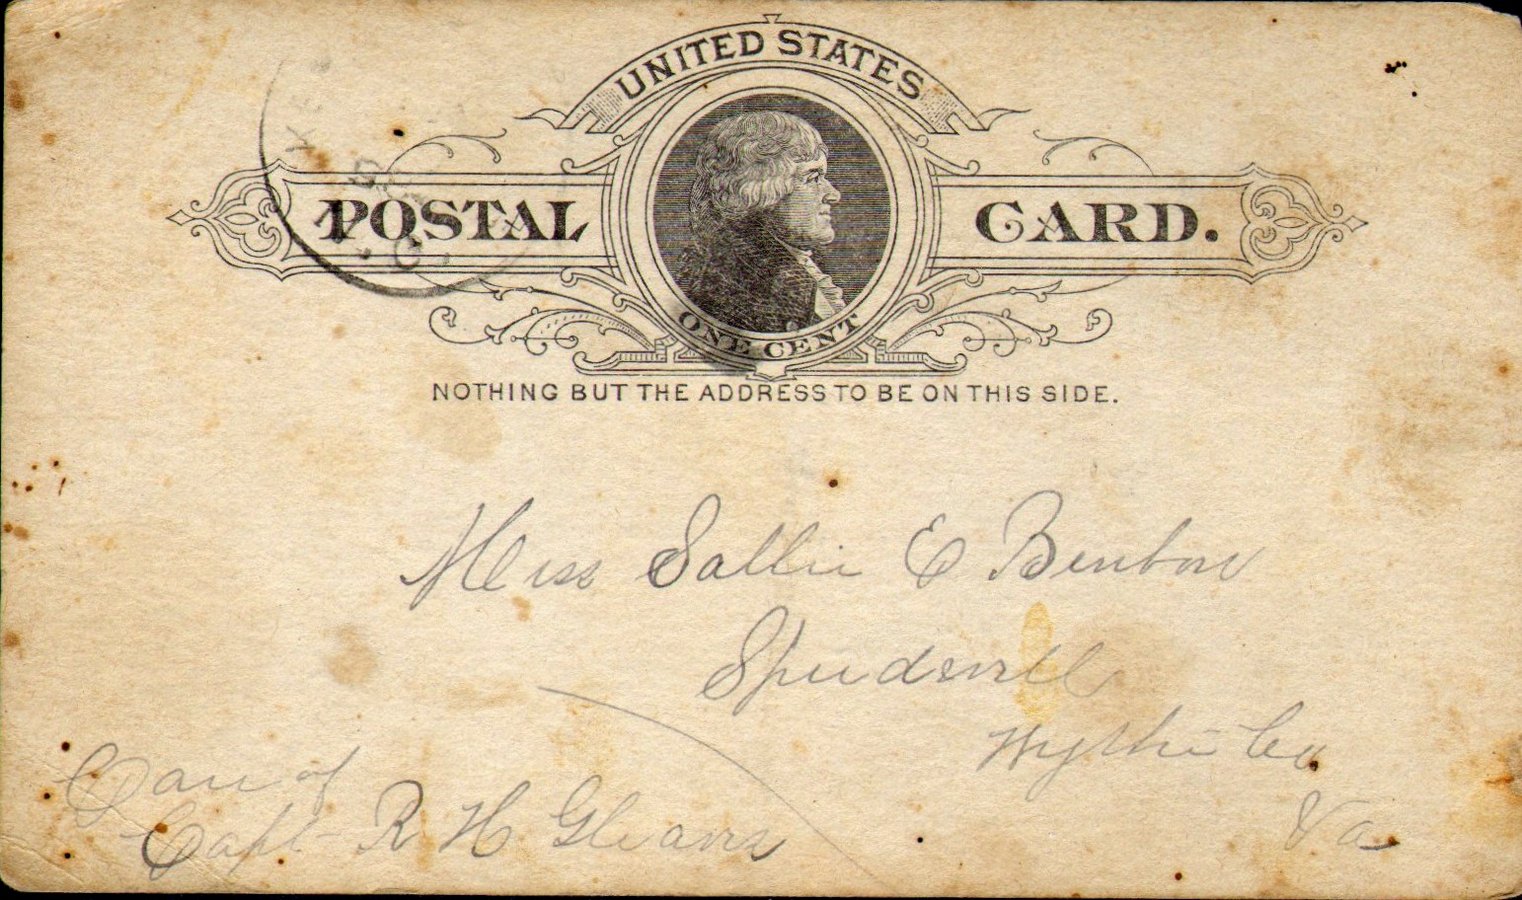 UNITED STATES
POSTAL CARD.
ONE CENT
NOTHING BUT THE ADDRESS TO BE ON THIS SIDE.
Miss Sallie E Benbow
Speedwell
Wythe Co
Va
Care of
Capt R H Gleaves